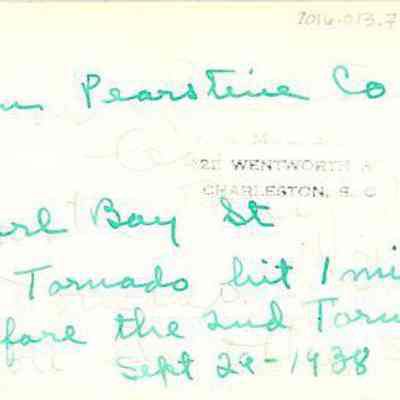 2016.013.7
Pearstine Co
22 WENTWORTH
CHARLESTON, S. C
Bay St
Tornado hit 1 mi
fore the 2nd Torn
Sept 29-1938